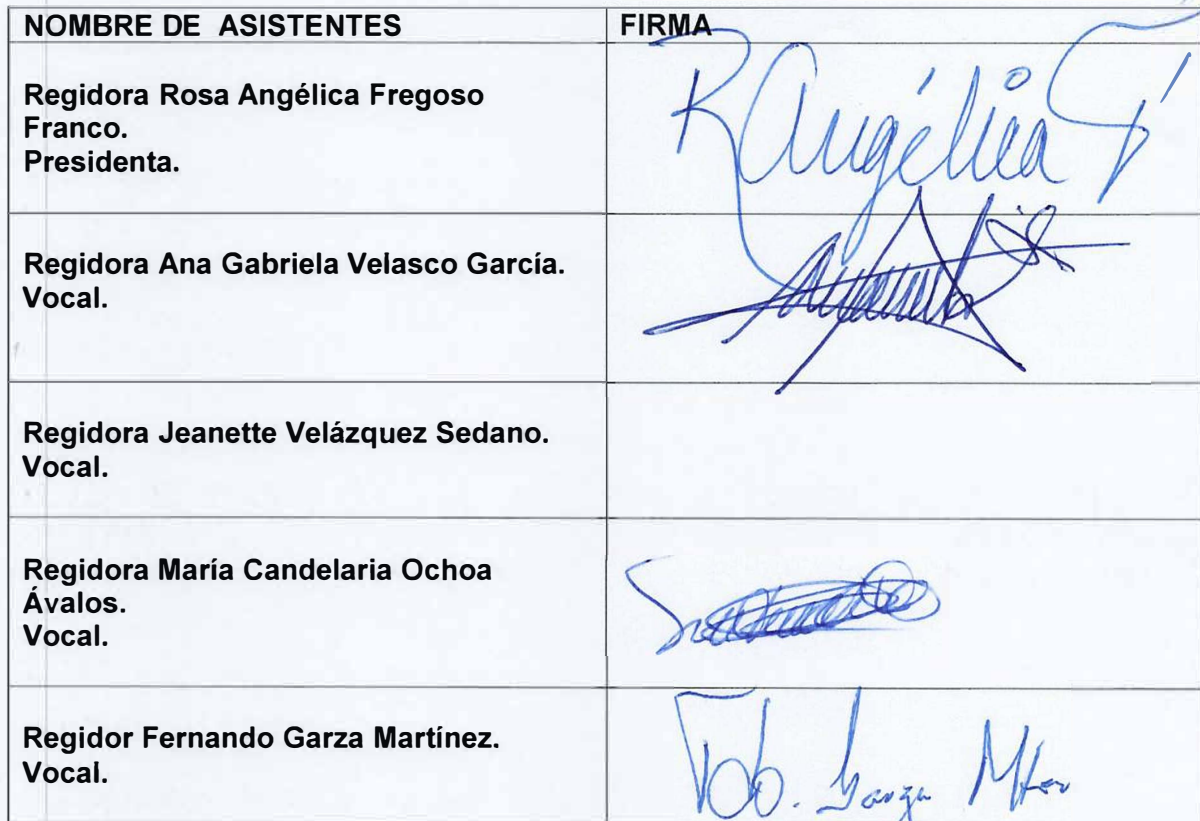 NOMBRE DE ASISTENTES FIRMA
Regidora Rosa Angélica Fregoso
Franco.
Presidenta.
R Angélica F
Regidora Ana Gabriela Velasco García.
Vocal.
Regidora Jeanette Velázquez Sedano.
Vocal.
Regidora María Candelaria Ochoa
Ávalos.
Vocal.
Regidor Fernando Garza Martínez.
Vocal.
Garza